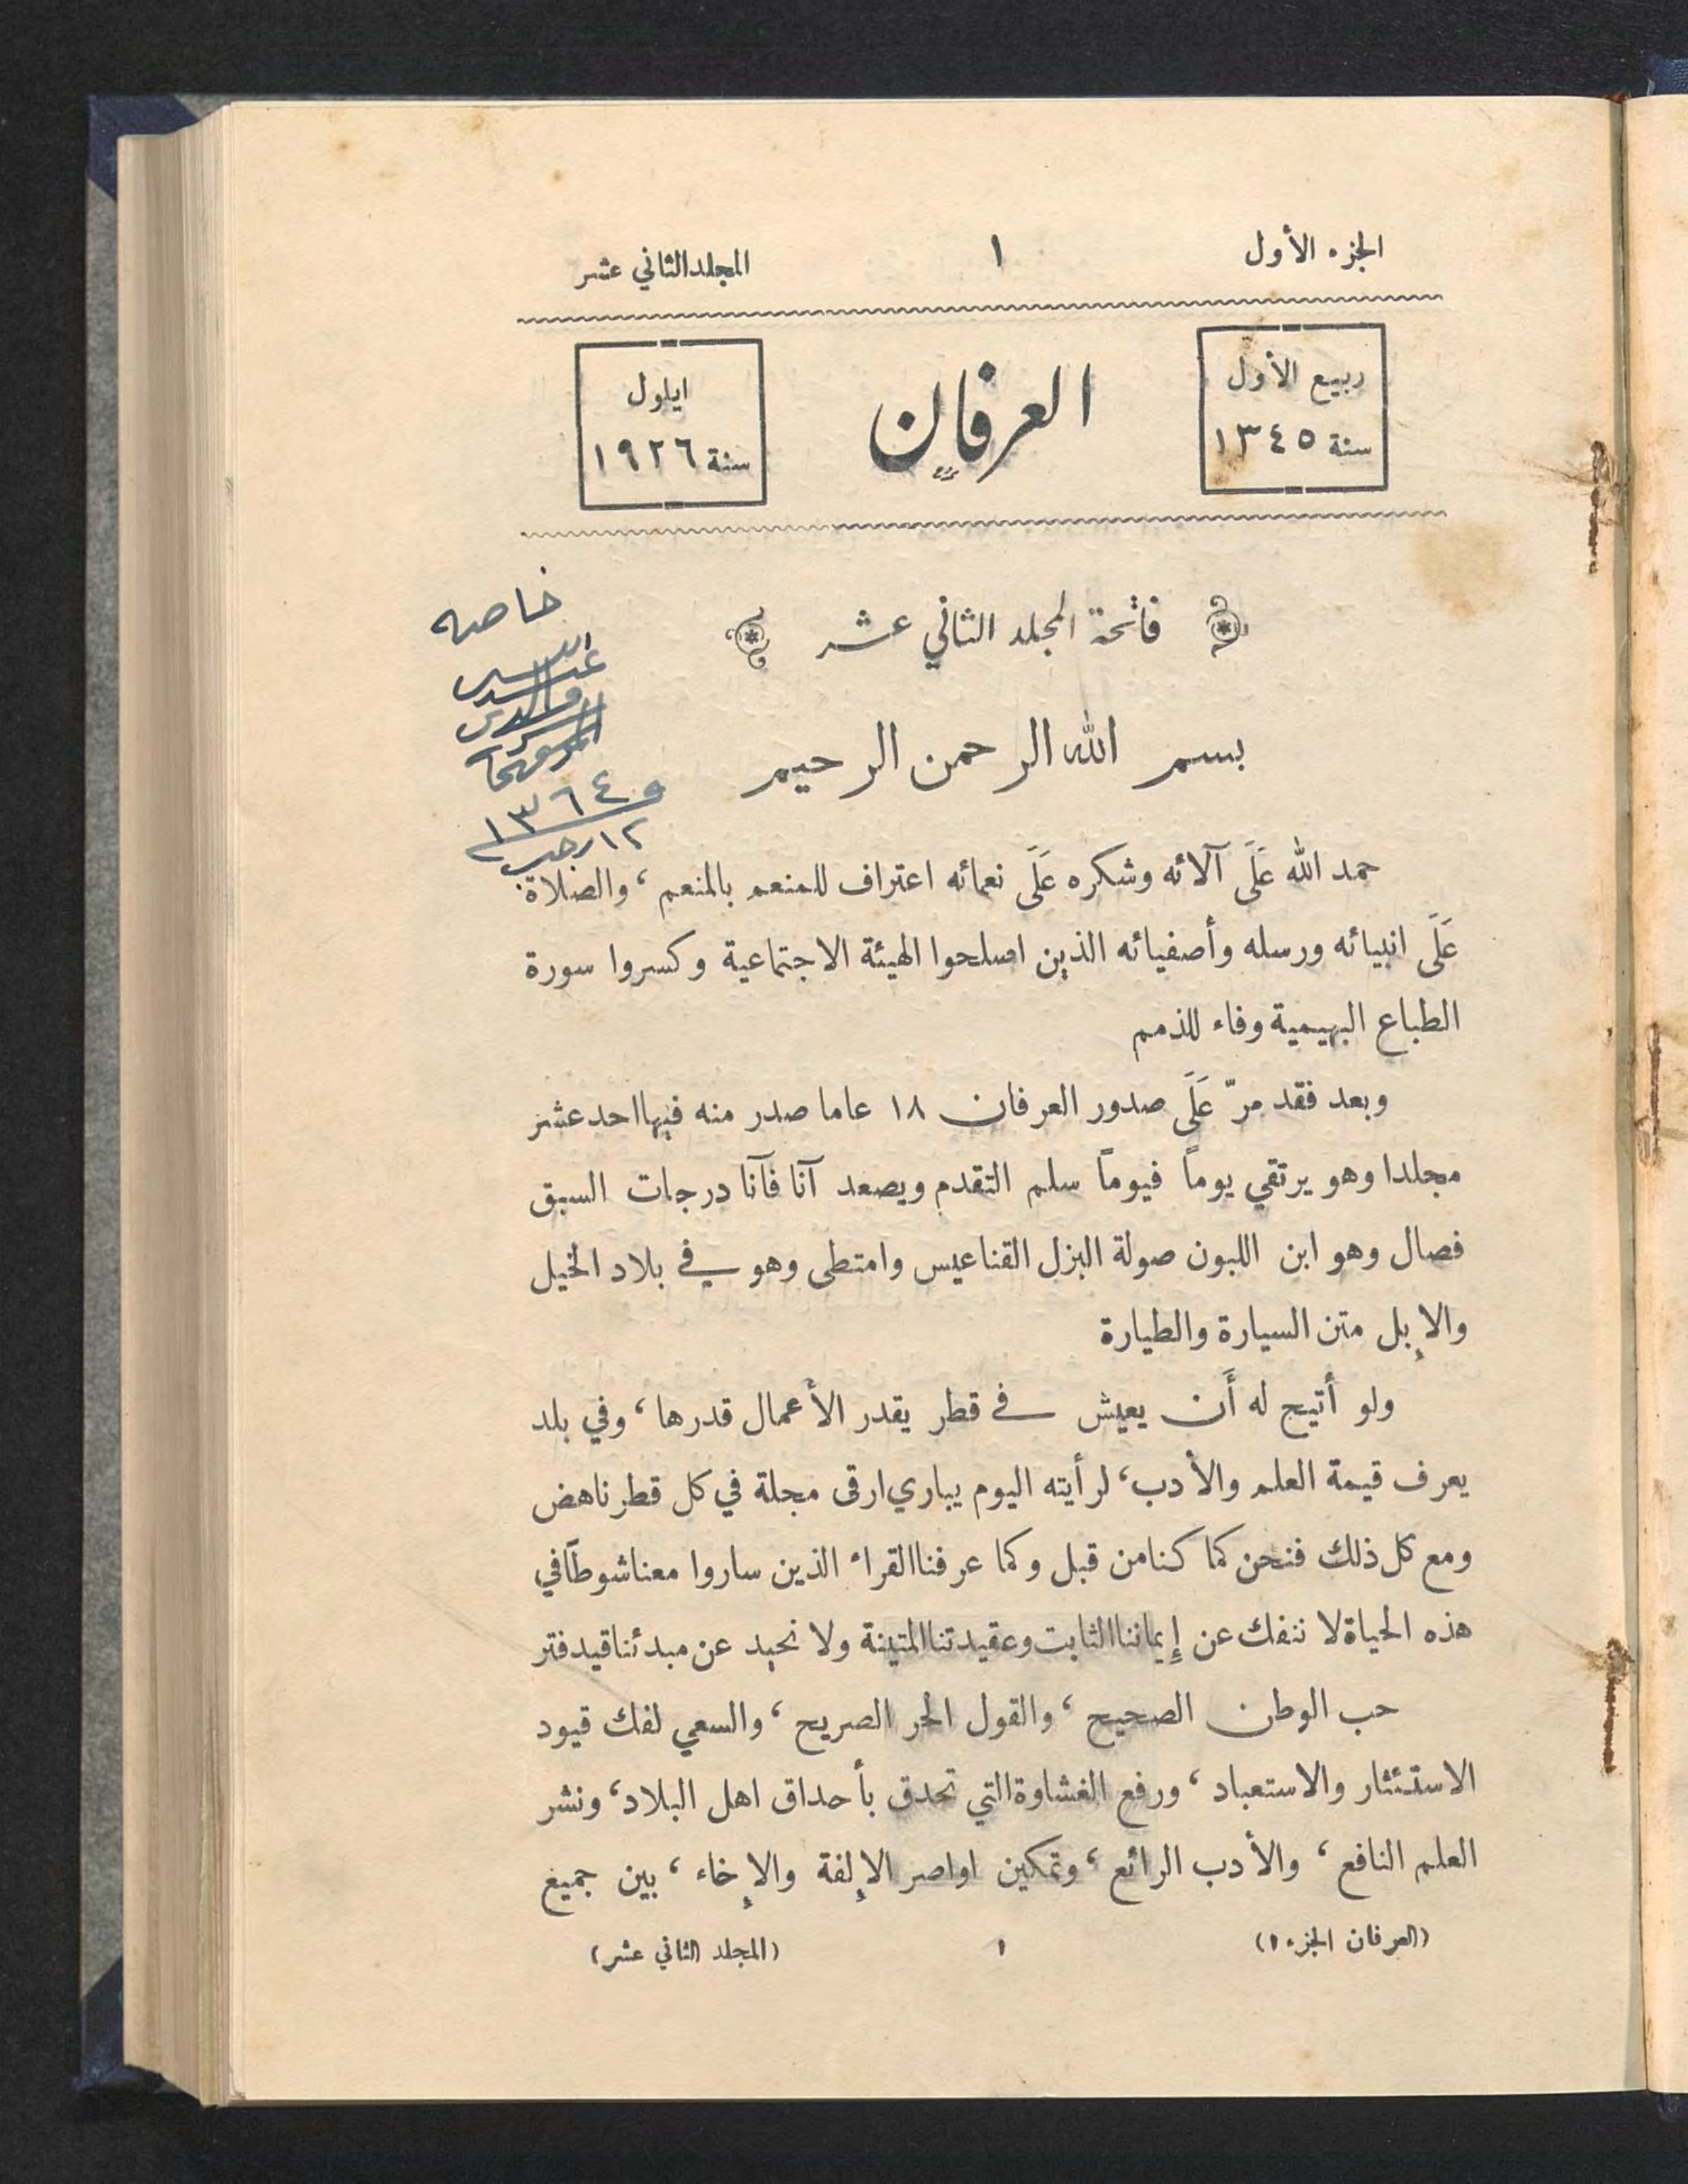 الجزء الأول ١ المجلد الثاني عشر
ربيع الأول
سنة ١٣٤٥
العرفان
ايلول
سنة ١٩٢٦
فاتحة المجلد الثاني عشر
خاصه
١٣٦٤
١٢ رجب
بسم الله الرحمن الرحيم
حمد الله عَلَى آلائه وشكره عَلَى نعمائه اعتراف للمنعم بالمنعم ، والصلاة
عَلَى انبيائه ورسله وأصفيائه الذين اصلحوا الهيئة الاجتماعية وكسروا سورة
الطباع البهيمية وفاء للذمم
وبعد فقد مرّ عَلَى صدور العرفان ١٨ عاما صدر منه فيها احد عشر
مجلدا وهو يرتقي يوماً فيوماً سلم التقدم ويصعد آنا فآنا درجات السبق
فصال وهو ابن اللبون صولة البزل القناعيس وامتطى وهو في بلاد الخيل
والإبل متن السيارة والطيارة
ولو أتيح له أَن يعيش في قطر يقدر الأعمال قدرها ، وفي بلد
يعرف قيمة العلم والأدب ، لرأيته اليوم يباري ارقى مجلة في كل قطر ناهض
ومع كل ذلك فنحن كما كنا من قبل وكما عرفنا القراء الذين ساروا معنا شوطاً في
هذه الحياة لا ننفك عن إيماننا الثابت وعقيدتنا المتينة ولا نحيد عن مبدئنا قيد فتر
حب الوطن الصحيح ، والقول الحر الصريح ، والسعي لفك قيود
الاستئثار والاستعباد ، ورفع الغشاوة التي تحدق بأحداق اهل البلاد ، ونشر
العلم النافع ، والأدب الرائع ، وتمكين اواصر الإلفة والإخاء ، بين جميع
(العرفان الجزء ١) ١ (المجلد الثاني عشر)